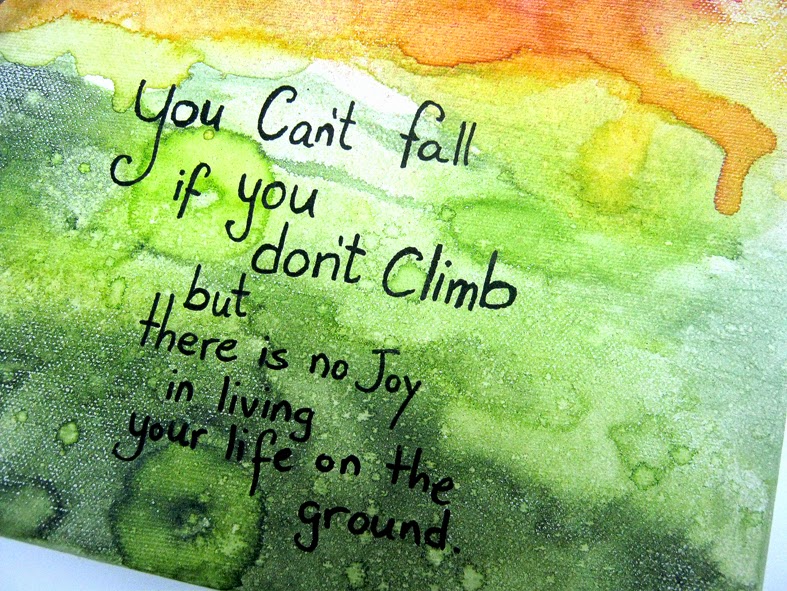 you Can't fall
if you
don't Climb
but
there is no Joy
in living
your life on the
ground.